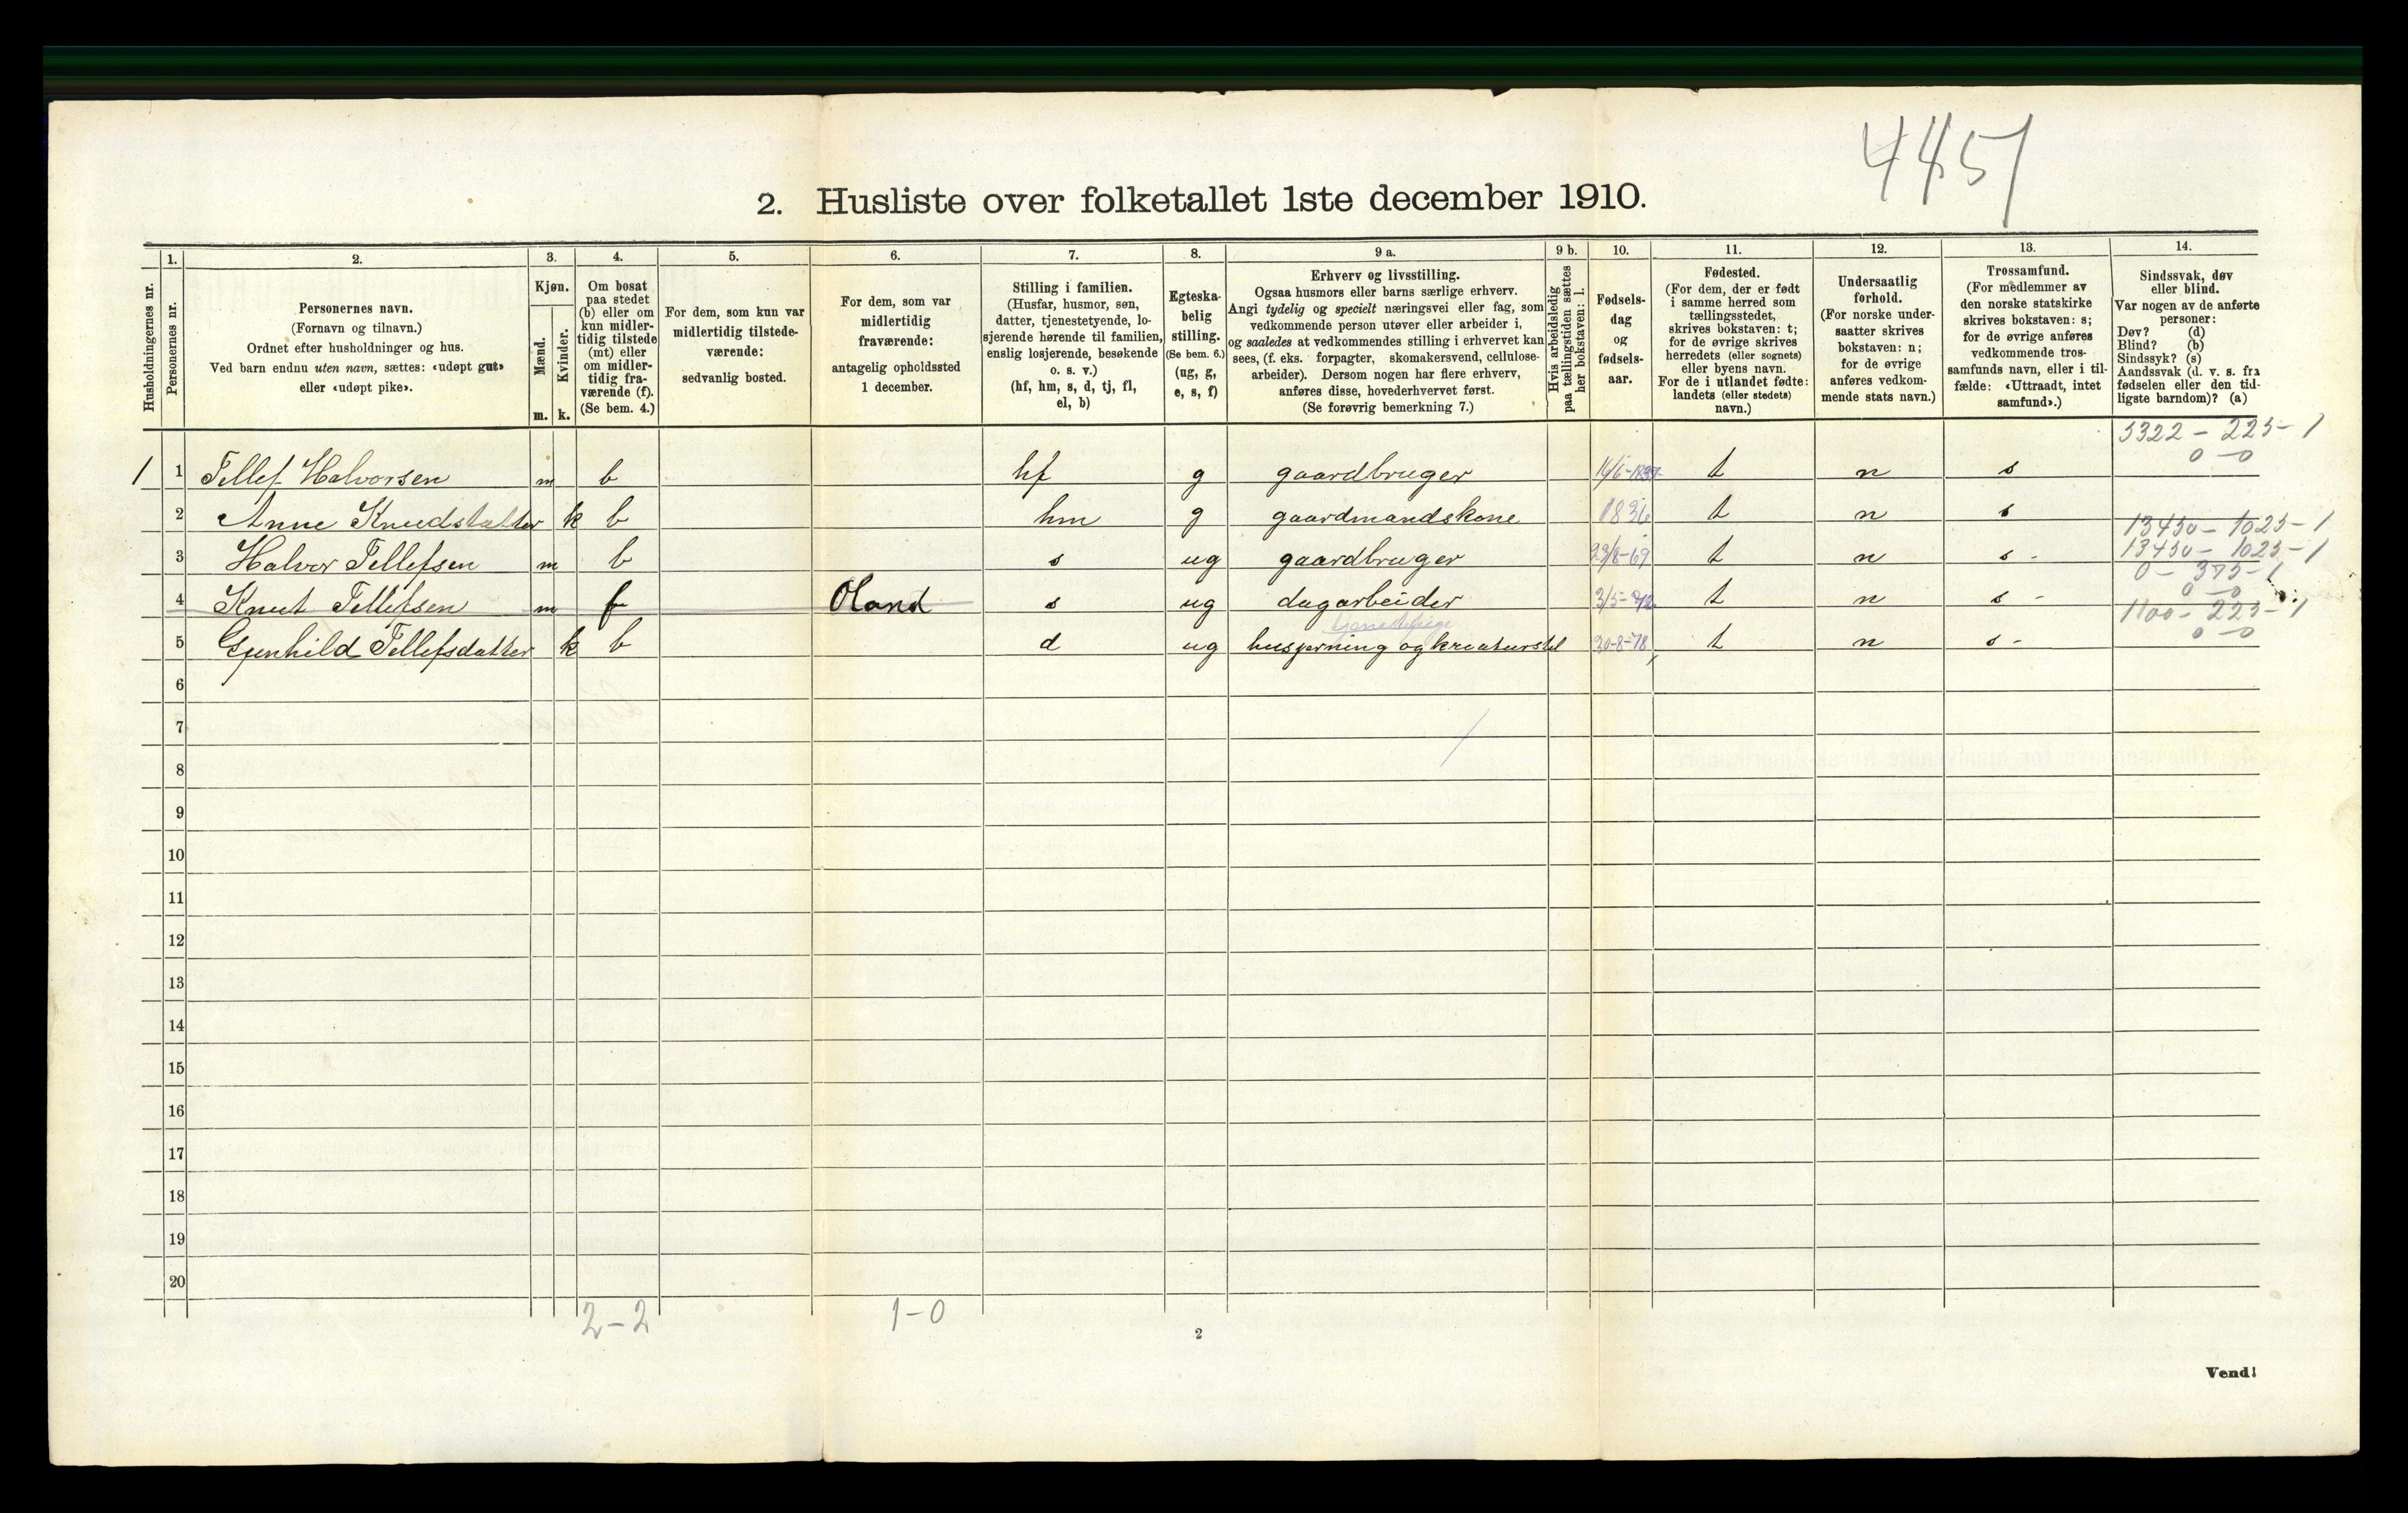 4451
2. Husliste over folketallet 1ste december 1910.
Husholdningernes nr.
1.
Personernes nr.
2.
Personernes navn.
(Fornavn og tilnavn.)
Ordnet efter husholdninger og hus.
Ved barn endnu uten navn, sættes: «udøpt gut»
eller «udøpt pike».
3.
Kjøn.
Mænd.
Kvinder.
m. k.
4.
Om bosat
paa stedet
(b) eller om
kun midler-
tidig tilstede
(mt) eller
om midler-
tidig fra-
værende (f).
(Se bem. 4.)
5.
For dem, som kun var
midlertidig tilstede-
værende:
sedvanlig bosted.
6.
For dem, som var
midlertidig
fraværende:
antagelig opholdssted
1 december.
7.
Stilling i familien.
(Husfar, husmor, søn,
datter, tjenestetyende, lo-
sjerende hørende til familien,
enslig losjerende, besøkende
o. s. v.)
(hf, hm, s, d, tj, fl,
el, b)
8.
Egteska-
belig
stilling.
(Se bem. 6.)
(ug, g,
e, s, f)
9 a.
Erhverv og livsstilling.
Ogsaa husmors eller barns særlige erhverv.
Angi tydelig og specielt næringsvei eller fag, som
vedkommende person utøver eller arbeider i,
og saaledes at vedkommendes stilling i erhvervet kan
sees, (f. eks. forpagter, skomakersvend, cellulose-
arbeider). Dersom nogen har flere erhverv,
anføres disse, hovederhvervet først.
(Se forøvrig bemerkning 7.)
9 b.
Hvis arbeidsledig
paa tællingstiden sættes
her bokstaven: l.
10.
Fødsels-
dag
og
fødsels-
aar.
11.
Fødested.
(For dem, der er født
i samme herred som
tællingsstedet,
skrives bokstaven: t;
for de øvrige skrives
herredets (eller sognets)
eller byens navn.
For de i utlandet fødte:
landets (eller stedets)
navn.)
12.
Undersaatlig
forhold.
(For norske under-
saatter skrives
bokstaven: n;
for de øvrige
anføres vedkom-
mende stats navn.)
13.
Trossamfund.
(For medlemmer av
den norske statskirke
skrives bokstaven: s;
for de øvrige anføres
vedkommende tros-
samfunds navn, eller i til-
fælde: «Uttraadt, intet
samfund».)
14.
Sindssvak, døv
eller blind.
Var nogen av de anførte
personer:
Døv? (d)
Blind? (b)
Sindssyk? (s)
Aandssvak (d. v. s. fra
fødselen eller den tid-
ligste barndom)? (a)
5322 - 225 - 1
0 - 0
1 1 Tellef Halvorsen m b hf g gaardbruger t n s
2 Anne Knudsdatter k b hm g gaardmandskone 1836 t n s
13450 - 1025 - 1
3 Halvor Tellefsen m b s ug gaardbruger 23/8-69 t n s -
13450 - 1025 - 1
0 - 375 - 1
4 Knut Tellefsen m f Oland s ug dagarbeider 3/5-72 t n s -
0 - 0
1100 - 225 - 1
5 Gunhild Tellefsdatter k b d ug husgerning og kreaturstel 30-8-78 t n s -
0 - 0
6
7
8
9
10
11
12
13
14
15
16
17
18
19
20
2-2 1-0
2
Vend!